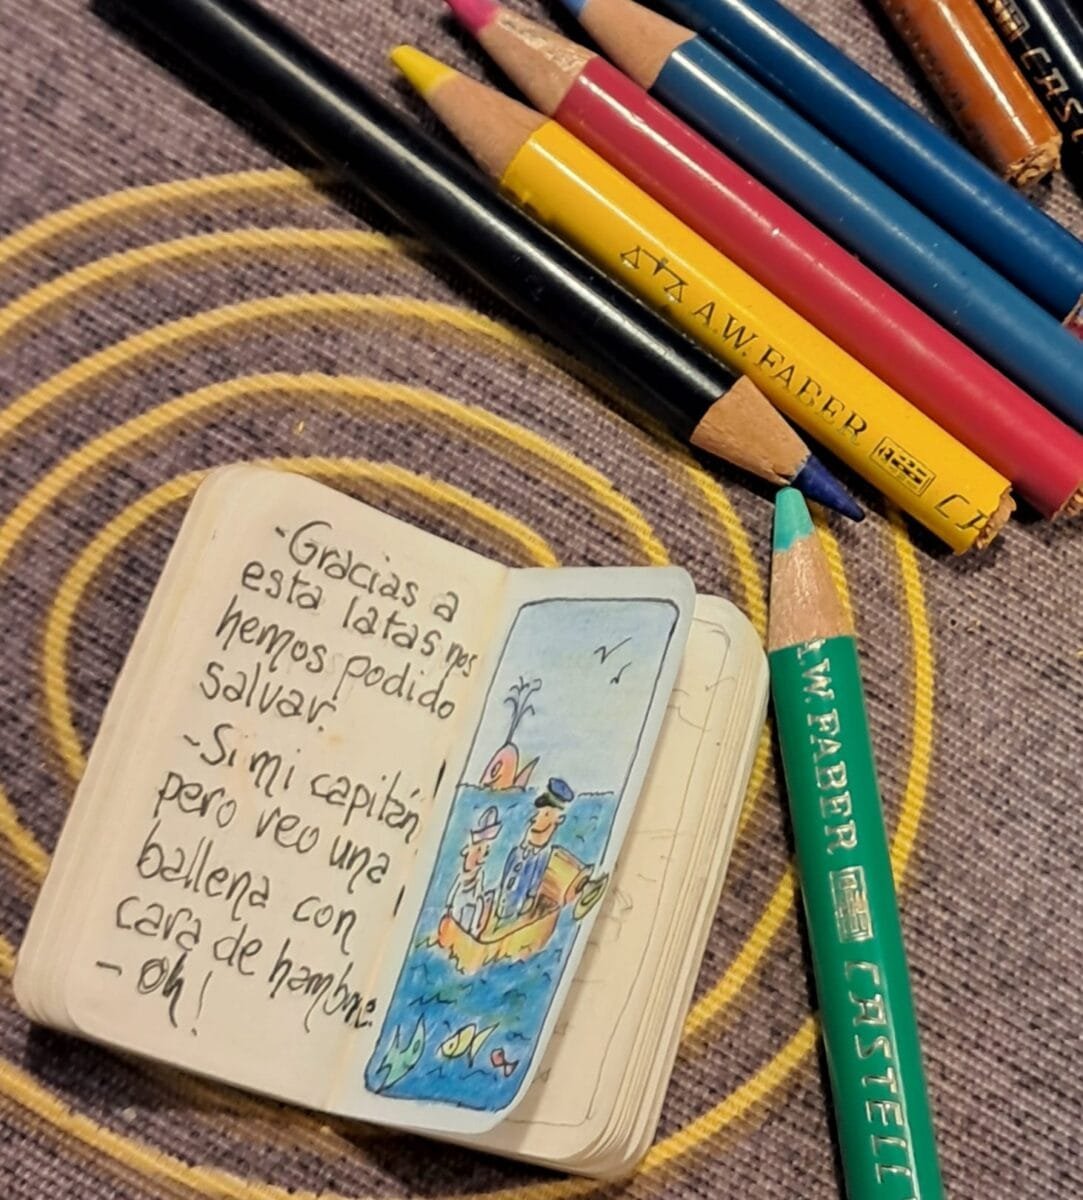 -Gracias a
esta latas nos
hemos podido
salvar.
-Si mi capitán
pero veo una
ballena con
cara de hambre.
- Oh!
A.W. FABER
.W. FABER CASTELL
CAST